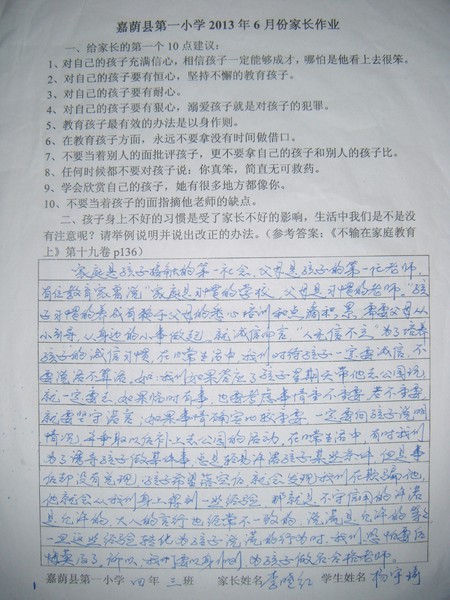 嘉荫县第一小学 2013 年 6 月份家长作业
一、给家长的第一个 10 点建议：
1、对自己的孩子充满信心，相信孩子一定能够成才，哪怕是他看上去很笨。
2、对自己的孩子要有恒心，坚持不懈的教育孩子。
3、对自己的孩子要有耐心。
4、对自己的孩子要有狠心，溺爱孩子就是对孩子的犯罪。
5、教育孩子最有效的办法是以身作则。
6、在教育孩子方面，永远不要拿没有时间做借口。
7、不要当着别人的面批评孩子，更不要拿自己的孩子和别人的孩子比。
8、任何时候都不要对孩子说：你真笨，简直无可救药。
9、学会欣赏自己的孩子，她有很多地方都像你。
10、不要当着孩子的面指摘他老师的缺点。
二、孩子身上不好的习惯是受了家长不好的影响，生活中我们是不是没
有注意呢？请举例说明并说出改正的办法。（参考答案：《不输在家庭教育
上》第十九卷 p136）
家庭是孩子接触的第一社会，父母是孩子的第一任老师，
有位教育家曾说"家庭是习惯的学校，父母是习惯的老师。"孩
子习惯的养成有赖于父母的悉心培训和点滴积累，需要父母从
小引导，从身边的小事做起，就诚信而言"人无信不立"为了培养
孩子的诚信习惯，在日常生活中，我们对待孩子一定要诚信，不
要说话不算话，如：我们如果答应了孩子星期天带他去公园玩，
就一定要去，如果临时有事，也要考虑事情重不重要，若不重要，
就要坚守诺言；如果事情确实比较重要，一定要向孩子说明
情况，并争取以后补上去公园的活动，在日常生活中，有时我们
为了诱导孩子做某件事，总是轻易许诺孩子某些条件，但是事
后却没有兑现，孩子希望落空后，就会发现我们在欺骗他，
他就会从我们身上得到一些经验，那就是不守信用的许诺
是允许的，大人的言行也经常不一致的，说谎是允许的等
一旦这些经验转化为孩子说谎的行为时，我们恐怕要后
悔莫及了，所以，我们要以身作则，为孩子做名合格老师。
嘉荫县第一小学 四 年 三 班 家长姓名 李晓红 学生姓名